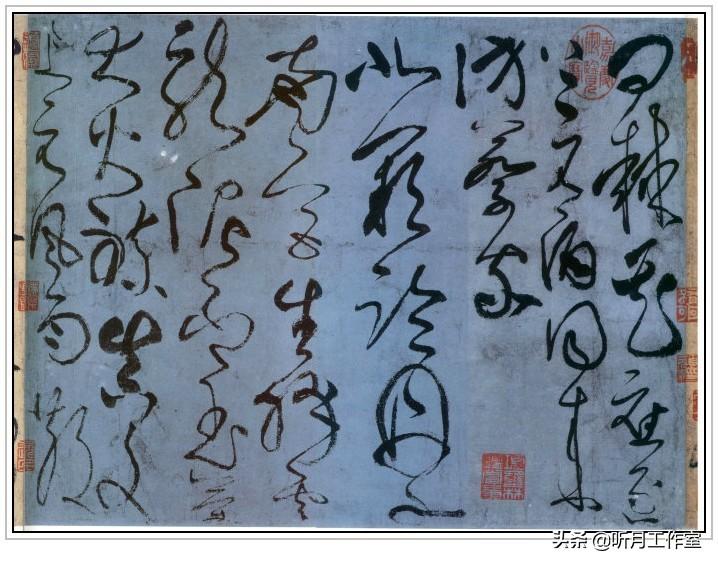 問棘花應逐
上元酒同來
訪蔡家
北闕臨丹水
南宮生絳雲
龍泥印玉簡
大火煉真文
上元風雨散
头条 @听月工作室